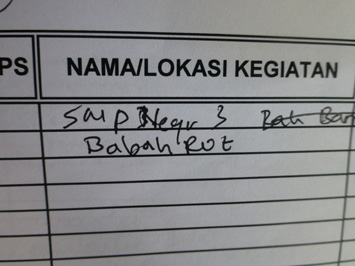 PS NAMA/LOKASI KEGIATAN
SMP Negr 3
Babah ROT